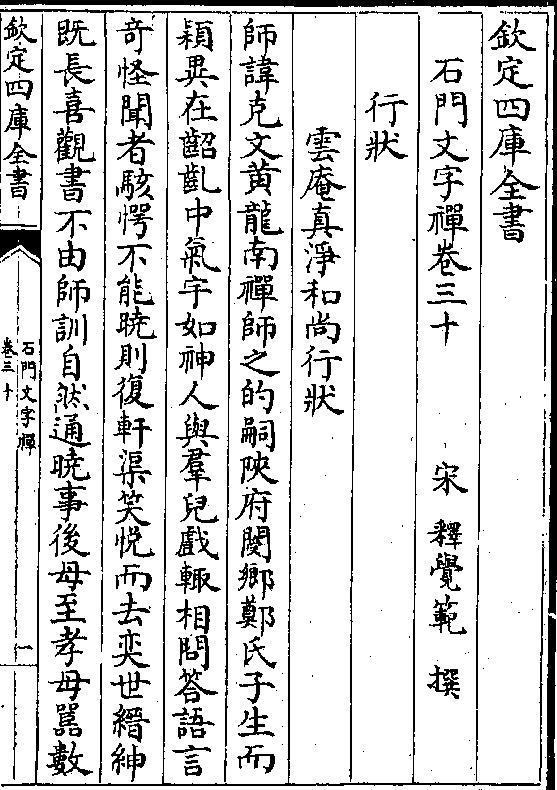 欽定四庫全書
石門文字禪卷三十 宋 釋覺範 撰
行狀
雲庵真淨和尚行狀
師諱克文黃龍南禪師之的嗣陝府閿鄉鄭氏子生而
穎異在齠齓中氣宇如神人與羣兒戲輙相問答語言
奇怪聞者駭愕不能曉則復軒渠笑悅而去奕世縉紳
既長喜觀書不由師訓自然通曉事後母至孝母嚚數
欽定四庫全書
石門文字禪
卷三十
一